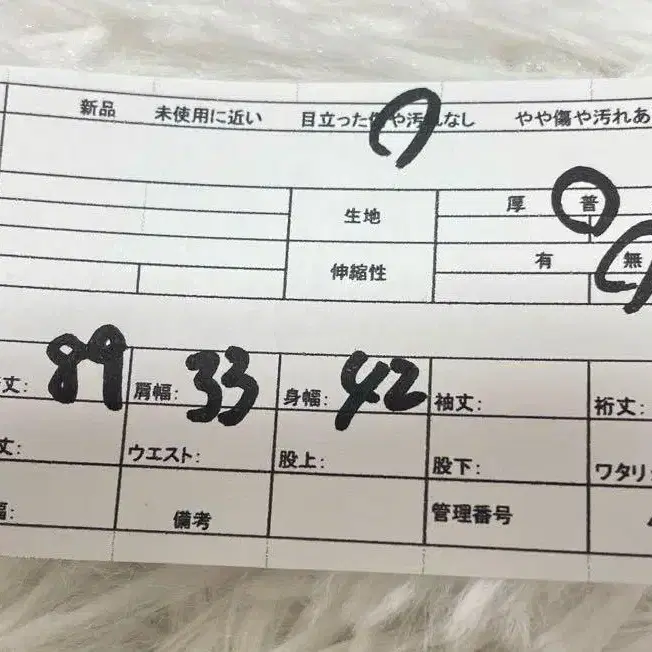 新品 未使用に近い 目立った傷や汚れなし やや傷や汚れあ
生地 厚 普
伸縮性 有 無
丈: 89 肩幅: 33 身幅: 42 袖丈: 裄丈:
丈: ウエスト: 股上: 股下: ワタリ
幅: 備考 管理番号